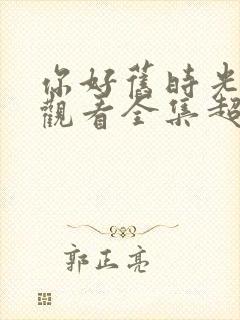 你好舊時光
觀看全集超
郭正亮